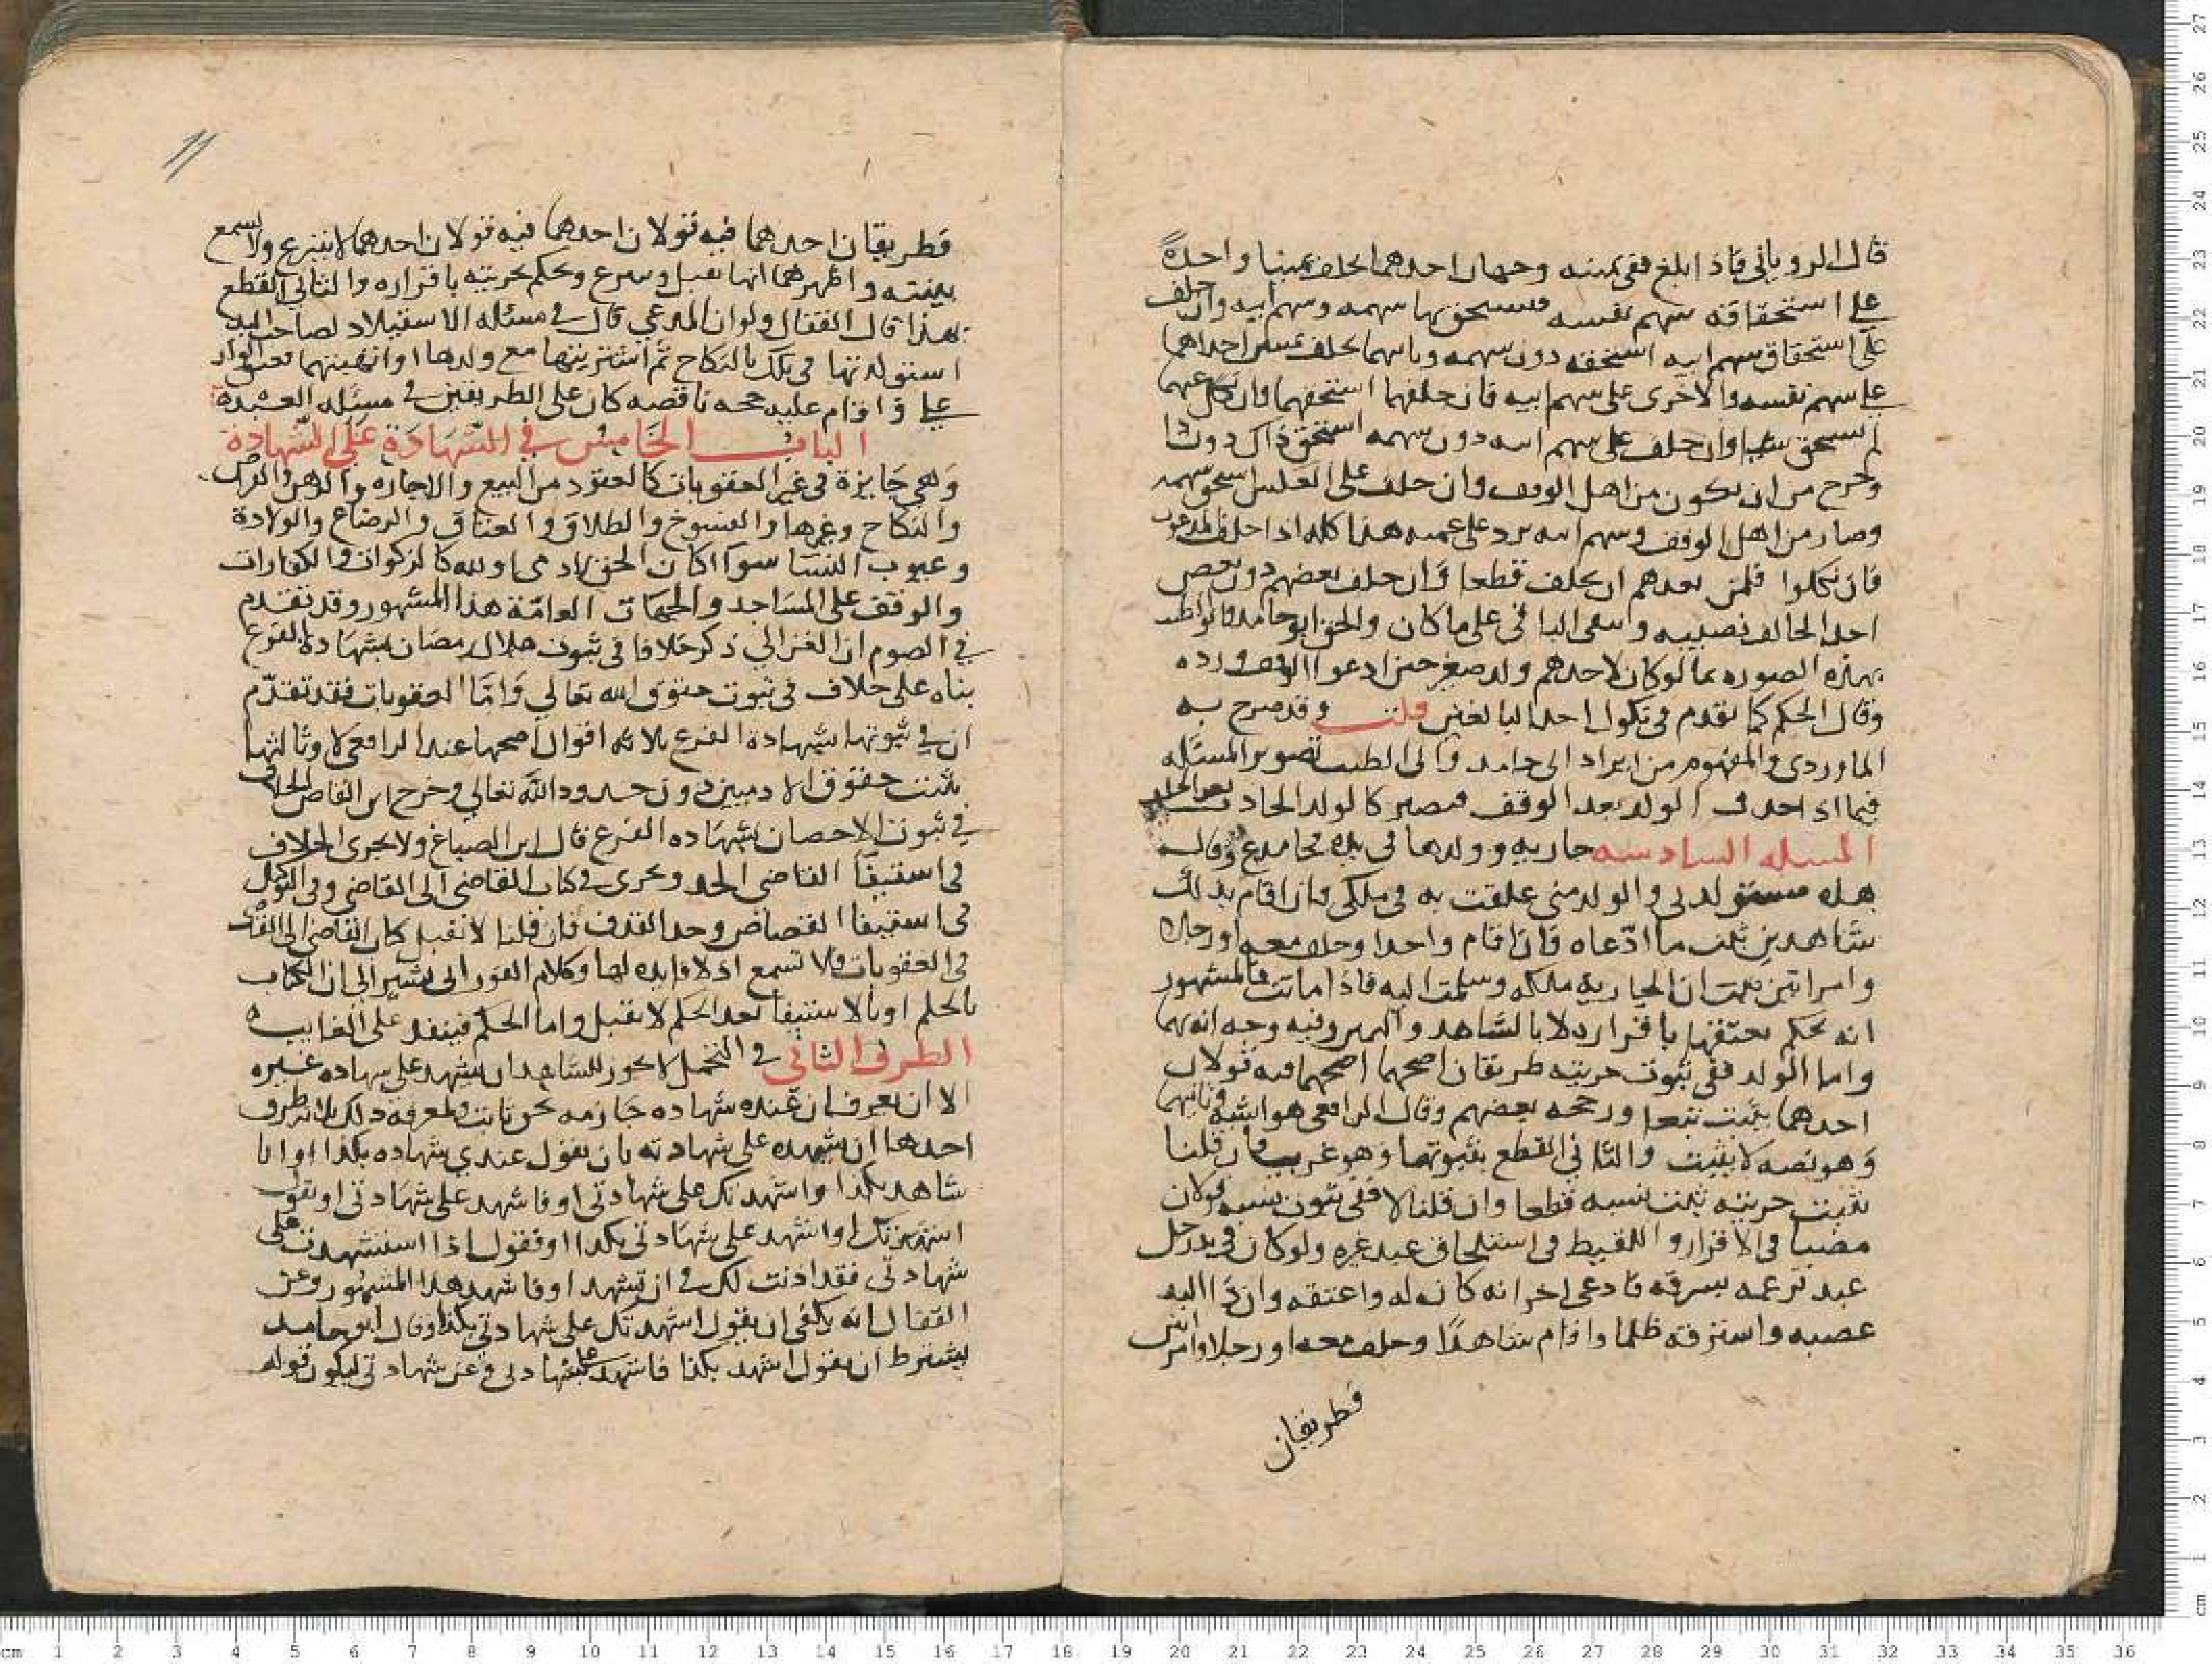 قال الروياني فاذا بلغ ففي يمينه وجهان احدهما يحلف يمينا واحدة
على استحقاقه سهم نفسه فيستحق بها سهمه وسهم ابيه وان حلف
على استحقاق سهم ابيه استحقه دون سهمه وثانيهما يحلف يمينين احداهما
على سهم نفسه والاخرى على سهم ابيه فان حلفهما استحقهما وان نكل عنهما
لم يستحق شيا وان حلف على سهم ابيه دون سهمه استحق ذاك دون ذا
وخرج من ان يكون من اهل الوقف وان حلف على العكس استحق سهمه
وصار من اهل الوقف وسهم ابيه يرد على عميه هذا كله اذا حلف المدعون
فان نكلوا فلمن بعدهم ان يحلف قطعا وان حلف بعضهم دون بعض
اخذ الحالف نصيبه وبقي الباقي على ما كان والحق ابو حامد وابو الطيب
بهذه الصوره بما لو كان لاحدهم ولد صغير حين ادعوا الوقف ورده
وقال الحكم كما تقدم في نكول احد البالغين قلت وقد صرح به
الماوردي والمفهوم من ايراد ابي حامد وابي الطيب تصوير المسئله
فيما اذا حدث الولد بعد الوقف فيصير كالولد الحادث
المسله السادسه جاريه وولدها في يده فجا مدع وقال
هذه مستولدتي والولد مني علقت به في ملكي فان اقام بذلك
شاهدين ثبت ما ادعاه فان اقام واحدا وحلف معه او رجلا
وامراتين ثبت ان الجاريه ملكه وسلمت اليه فاذا مات فالمشهور
انه يحكم بعتقها باقراره لا بالشاهد واليمين وفيه وجه انه بهما
واما الولد ففي ثبوت حريته طريقان اصحهما اصحهما فيه قولان
احدهما يثبت تبعا ورجحه بعضهم وقال الرافعي هو اشبه وثانيهما
وهو نصه لا يثبت والثاني القطع بثبوتها وهو غريب فان قلنا
تثبت حريته ثبت نسبه قطعا وان قلنا لا ففي ثبوت نسبه قولان
مضيا في الاقرار واللقيط في استلحاق عبد غيره ولو كان في يد رجل
عبد يزعمه يسرقه فادعى اخر انه كان له واعتقه وان ذا اليد
غصبه واسترقه ظلما واقام شاهدا وحلف معه او رجلا وامراتين
فطريقان
فطريقان احدهما فيه قولان احدهما فيه قولان احدهما لا ينتزع ولا تسمع
بينته واظهرهما انها تقبل وينزع ويحكم بحريته باقراره والثاني القطع
بهذا قال القفال ولو ان المدعي قال في مسئله الاستيلاد لصاحب اليد
استولدتها في ملك بالنكاح ثم اشتريتها مع ولدها او اتهبتهما فعتق الولد
علي واقام عليه حجه ناقصه كان على الطريقين في مسئله العبد
الباب الخامس في الشهادة على الشهادة
وهي جايزة في غير العقوبات كالعقود من البيع والاجاره والرهن والقرض
والنكاح وغيرها والفسوخ والطلاق والعتاق والرضاع والولادة
وعيوب النسا سوا اكان الحق لادمي او لله كالزكوات والكفارات
والوقف على المساجد والجهات العامة هذا المشهور وقد تقدم
في الصوم ان الغزالي ذكر خلافا في ثبوت هلال رمضان بشهادة الفرع
بناه على خلاف في ثبوت حقوق الله تعالي واما العقوبات فقد تقدم
ان في ثبوتها بشهادة الفرع ثلاثه اقوال اصحها عند الرافعي لا وثالثها
يثبت حقوق الادميين دون حدود الله تعالي وخرج ابن القاص الخلاف
في ثبوت الاحصان بشهاده الفرع قال ابن الصباغ ولا يجري الخلاف
في استيفا القاضي الحد ويجري في كتاب القاضي الى القاضي وفي التوكل
في استيفا القصاص وحد القذف فان قلنا لا تقبل كتاب القاضي الى القاضي
في العقوبات فلا تسمع اذ لا فايده لها وكلام الفوراني يشير الى ان الكتاب
بالحكم او بالاستيفا بعد الحكم لا يقبل واما الحكم فينفذ على الغايب
الطرف الثاني في التحمل لا يجوز للشاهد ان يشهد على شهاده غيره
الا ان يعرف ان عنده شهاده جازمه بحق ثابت ولمعرفه ذلك ثلاث طرق
احدها ان يشهده على شهادته بان يقول عندي شهاده بكذا او انا
شاهد بكذا واشهدتك على شهادتي او فاشهد على شهادتي او يقول
او اشهد على شهادتي بكذا او فقول اذا استشهدت على
شهادتي فقد اذنت لك في ان تشهد او فاشهد هذا المشهور وعن
القفال انه يكفي ان يقول اشهدتك على شهادتي بكذا وقال ابو حامد
يشترط ان يقول اشهد بكذا فاشهد على شهادتي وعن شهادتي ليكون قوله